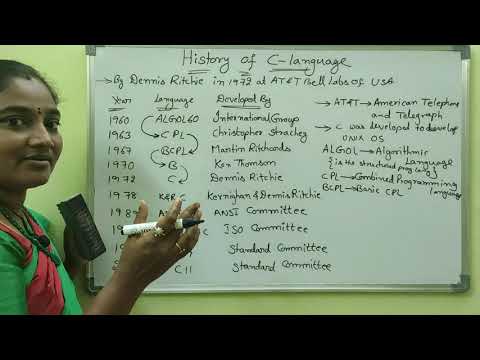 History of C-language
→ By Dennis Ritchie in 1972 at AT&T Bell Labs of USA
Year Language Developed By
1960 ALGOL60 International Group
1963 CPL Christopher Strachey
1967 BCPL Martin Richards
1970 B Ken Thomson
1972 C Dennis Ritchie
1978 K&R C Kernighan & Dennis Ritchie
198 ANSI Committee
C ISO Committee
Standard Committee
C11 Standard Committee
→ AT&T → American Telephone
and Telegraph
→ C was developed to develop
UNIX OS
ALGOL → Algorithmic
Language
{is the structured prog lang}
CPL → Combined Programming
Language
BCPL → Basic CPL